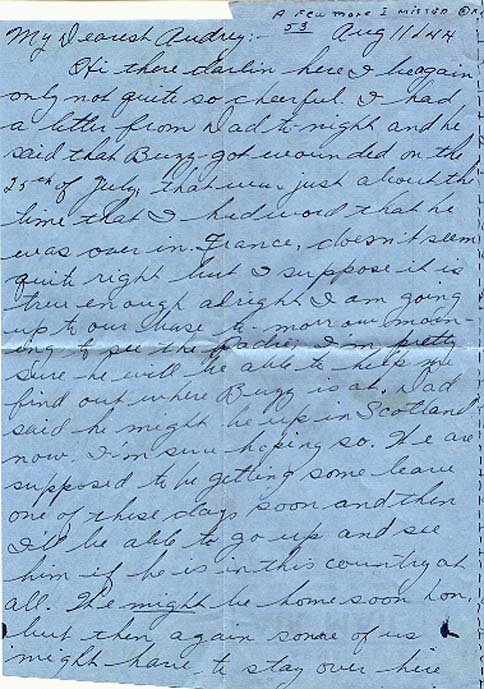 A few more I missed
53
Aug 11/44
My Dearest Audrey:-
Hi there darlin here I be again
only not quite so cheerful. I had
a letter from Dad to-night and he
said that Buzz got wounded on the
25th of July, that was just about the
time that I had word that he
was over in France, doesn't seem
quite right but I suppose it is
true enough alright I am going
up to our base to-morrow morn-
ing to see the Padre. I'm pretty
sure he will be able to help me
find out where Buzz is at. Dad
said he might be up in Scotland
now. I'm sure hoping so. We are
supposed to be getting some leave
one of these days soon and then
I'll be able to go up and see
him if he is in this country at
all. He might be home soon hon.
but then again some of us
might have to stay over here